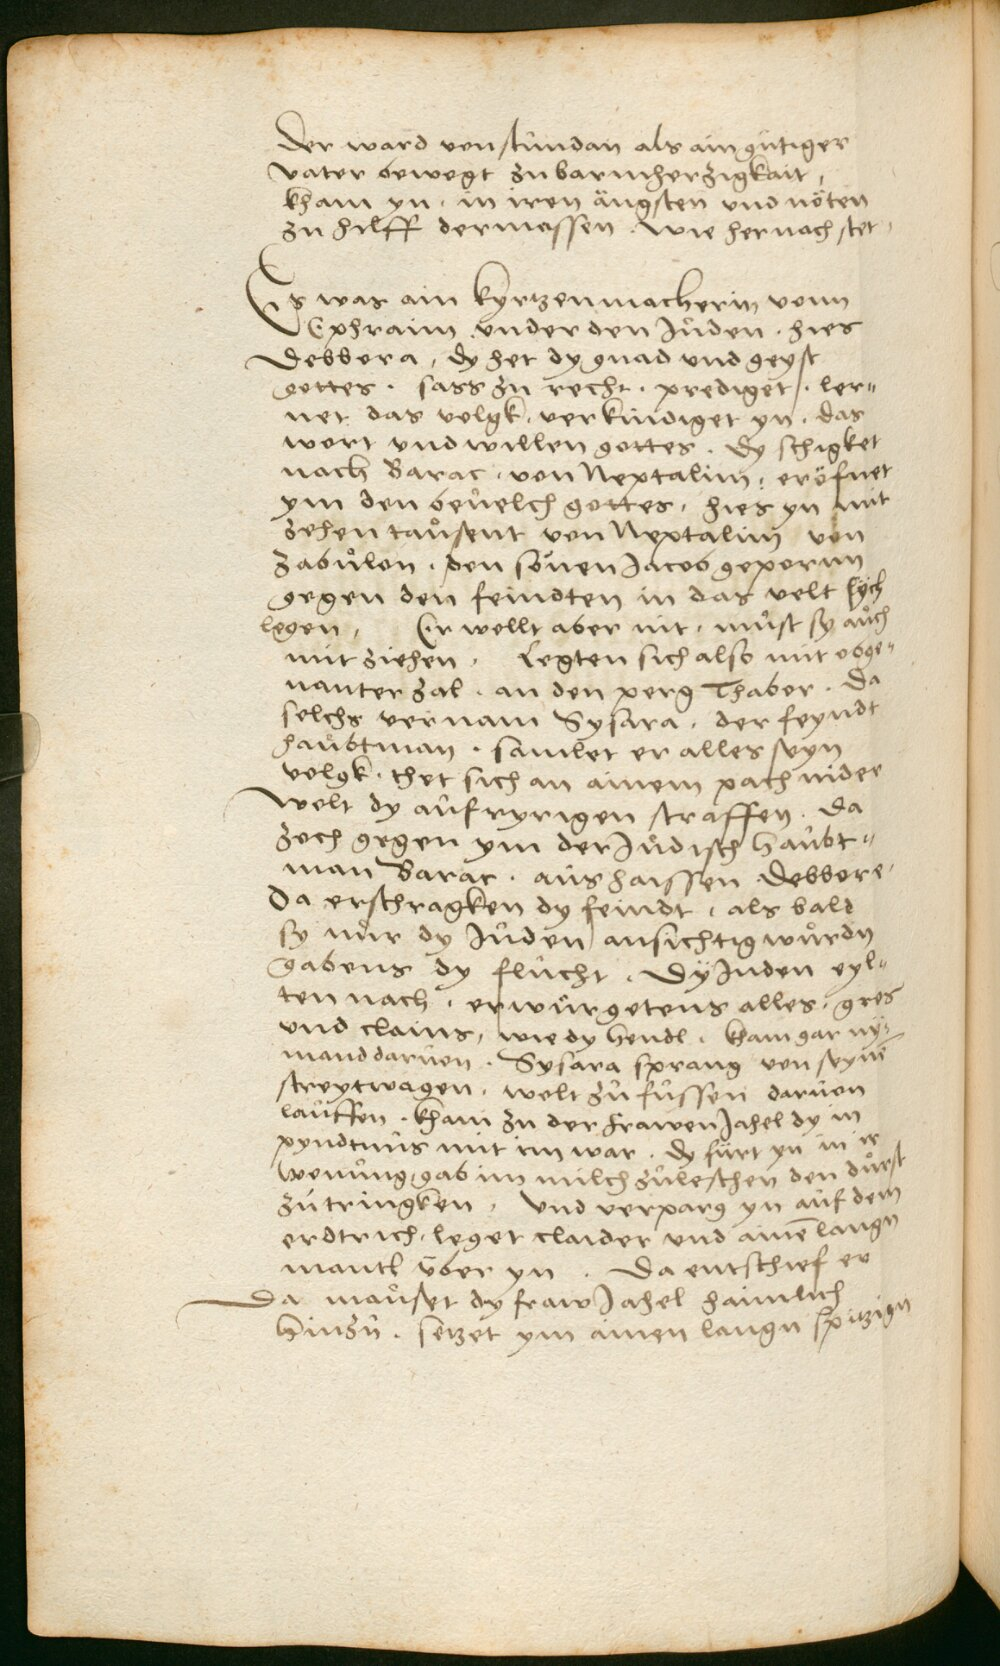 Der ward von stůndan als ain gůtiger
vater bewegt zu barmherzigkait,
kham yn, in iren ängsten und nöten
zu hilff dermassen. wie hernach stet,
Es was ain kyrtzenmacherin vonn
Ephraim, under den Jůden. hies
Debbora, dy het dy gnad und geyst
gottes. sass zu recht. prediget. ler=
net das volgk, verkündiget yn. das
wort und willen gottes. dy schigket
nach Barac, von Neptalim, eröfnet
ym den bevelch gottes, hies yn mit
zehen tausent von Neptalim von
Zabůlon. den sönen Jacob gepornn
gegen den feindten in das velt sych
legen, Er wollt aber nit. můst sy auch
mit ziehen. Legten sich also mit obge=
nanter zal. an den perg Thabor. Da
solchs vernam Sysara. der feyndt
haubtman. samlet er alles seyn
volgk. thet sich an ainem pach nider
wolt dy aufryrigen straffen. Da
zoch gegen ym der Jůdisch haubt=
man Barac. aus haissen Debbore.
Da erschragken dy feindt, als bald
sy nůr dy Jůden ansichtig wůrdn
gabens dy flucht. Dy Juden eyl=
ten nach. erwůrgetens alles. gros
und clains, wie dy hendl. kham gar ny=
mand darvon. Sysara sprang von seynē
streytwagen. wolt zů fůssen darvon
lauffen. kham zu der Frawen Jahel dy in
pyndtnůs mit im war. dy fůrt yn in ir
wonůng, gab im milch zuleschen den důrst
zůtringken, Und verparg yn auf dem
erdtrich, leget claider und ainē langn
mantl über yn. Da entschlief er
Da mauset dy fraw Jahel haimlich
hinzů. setzet ym ainen langn spitzign